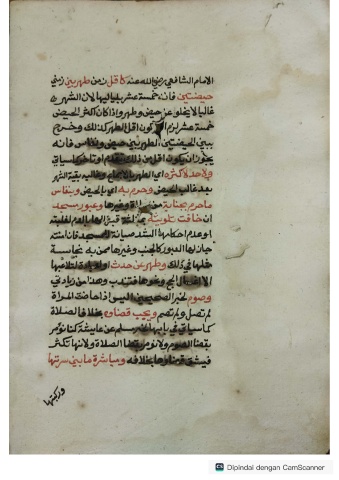 الامام الشافعي رضي الله عنه كاقل زمن طهر بين زمني
حيضتين فانه خمسة عشر بلياليها لان الشهر
غالبا لا يخلو عن حيض وطهر واذا كان اكثر الحيض
خمسة عشر لزم ان يكون اقل الطهر كذلك وخرج
ببين الحيضتين الطهر بين حيض ونفاس فانه
يجوز ان يكون اقل من ذلك تقدم او تاخر كما سياتي
ولا حد لاكثره اي الطهر بالاجماع وغالبه بقية الشهر
بعد غالب الحيض وحرم به اي بالحيض وبنفاس
ما حرم بجنابة من صلاة وغيرها وعبور مسجد
ان خافت تلويثه بالدم لغلبته
او عدم احكامها الشد صيانة للمسجد فان امنته
جاز لها العبور كالجنب وغيرها ممن به نجاسة
مثلها في ذلك وطهر عن حدث او لعبادة لتلاعبها
الا اغسال الحج ونحوها فتندب وهذا من زيادتي
وصوم لخبر الصحيحين اليس اذا حاضت المراة
لم تصل ولم تصم ويجب قضاوه بخلاف الصلاة
كما سياتي في بابها لخبر مسلم عن عايشة كنا نؤمر
بقضاء الصوم ولا نؤمر بقضا الصلاة ولانها تكثر
فيشق قضاوها بخلافه ومباشرة ما بين سرتها
وركبتها
Dipindai dengan CamScanner